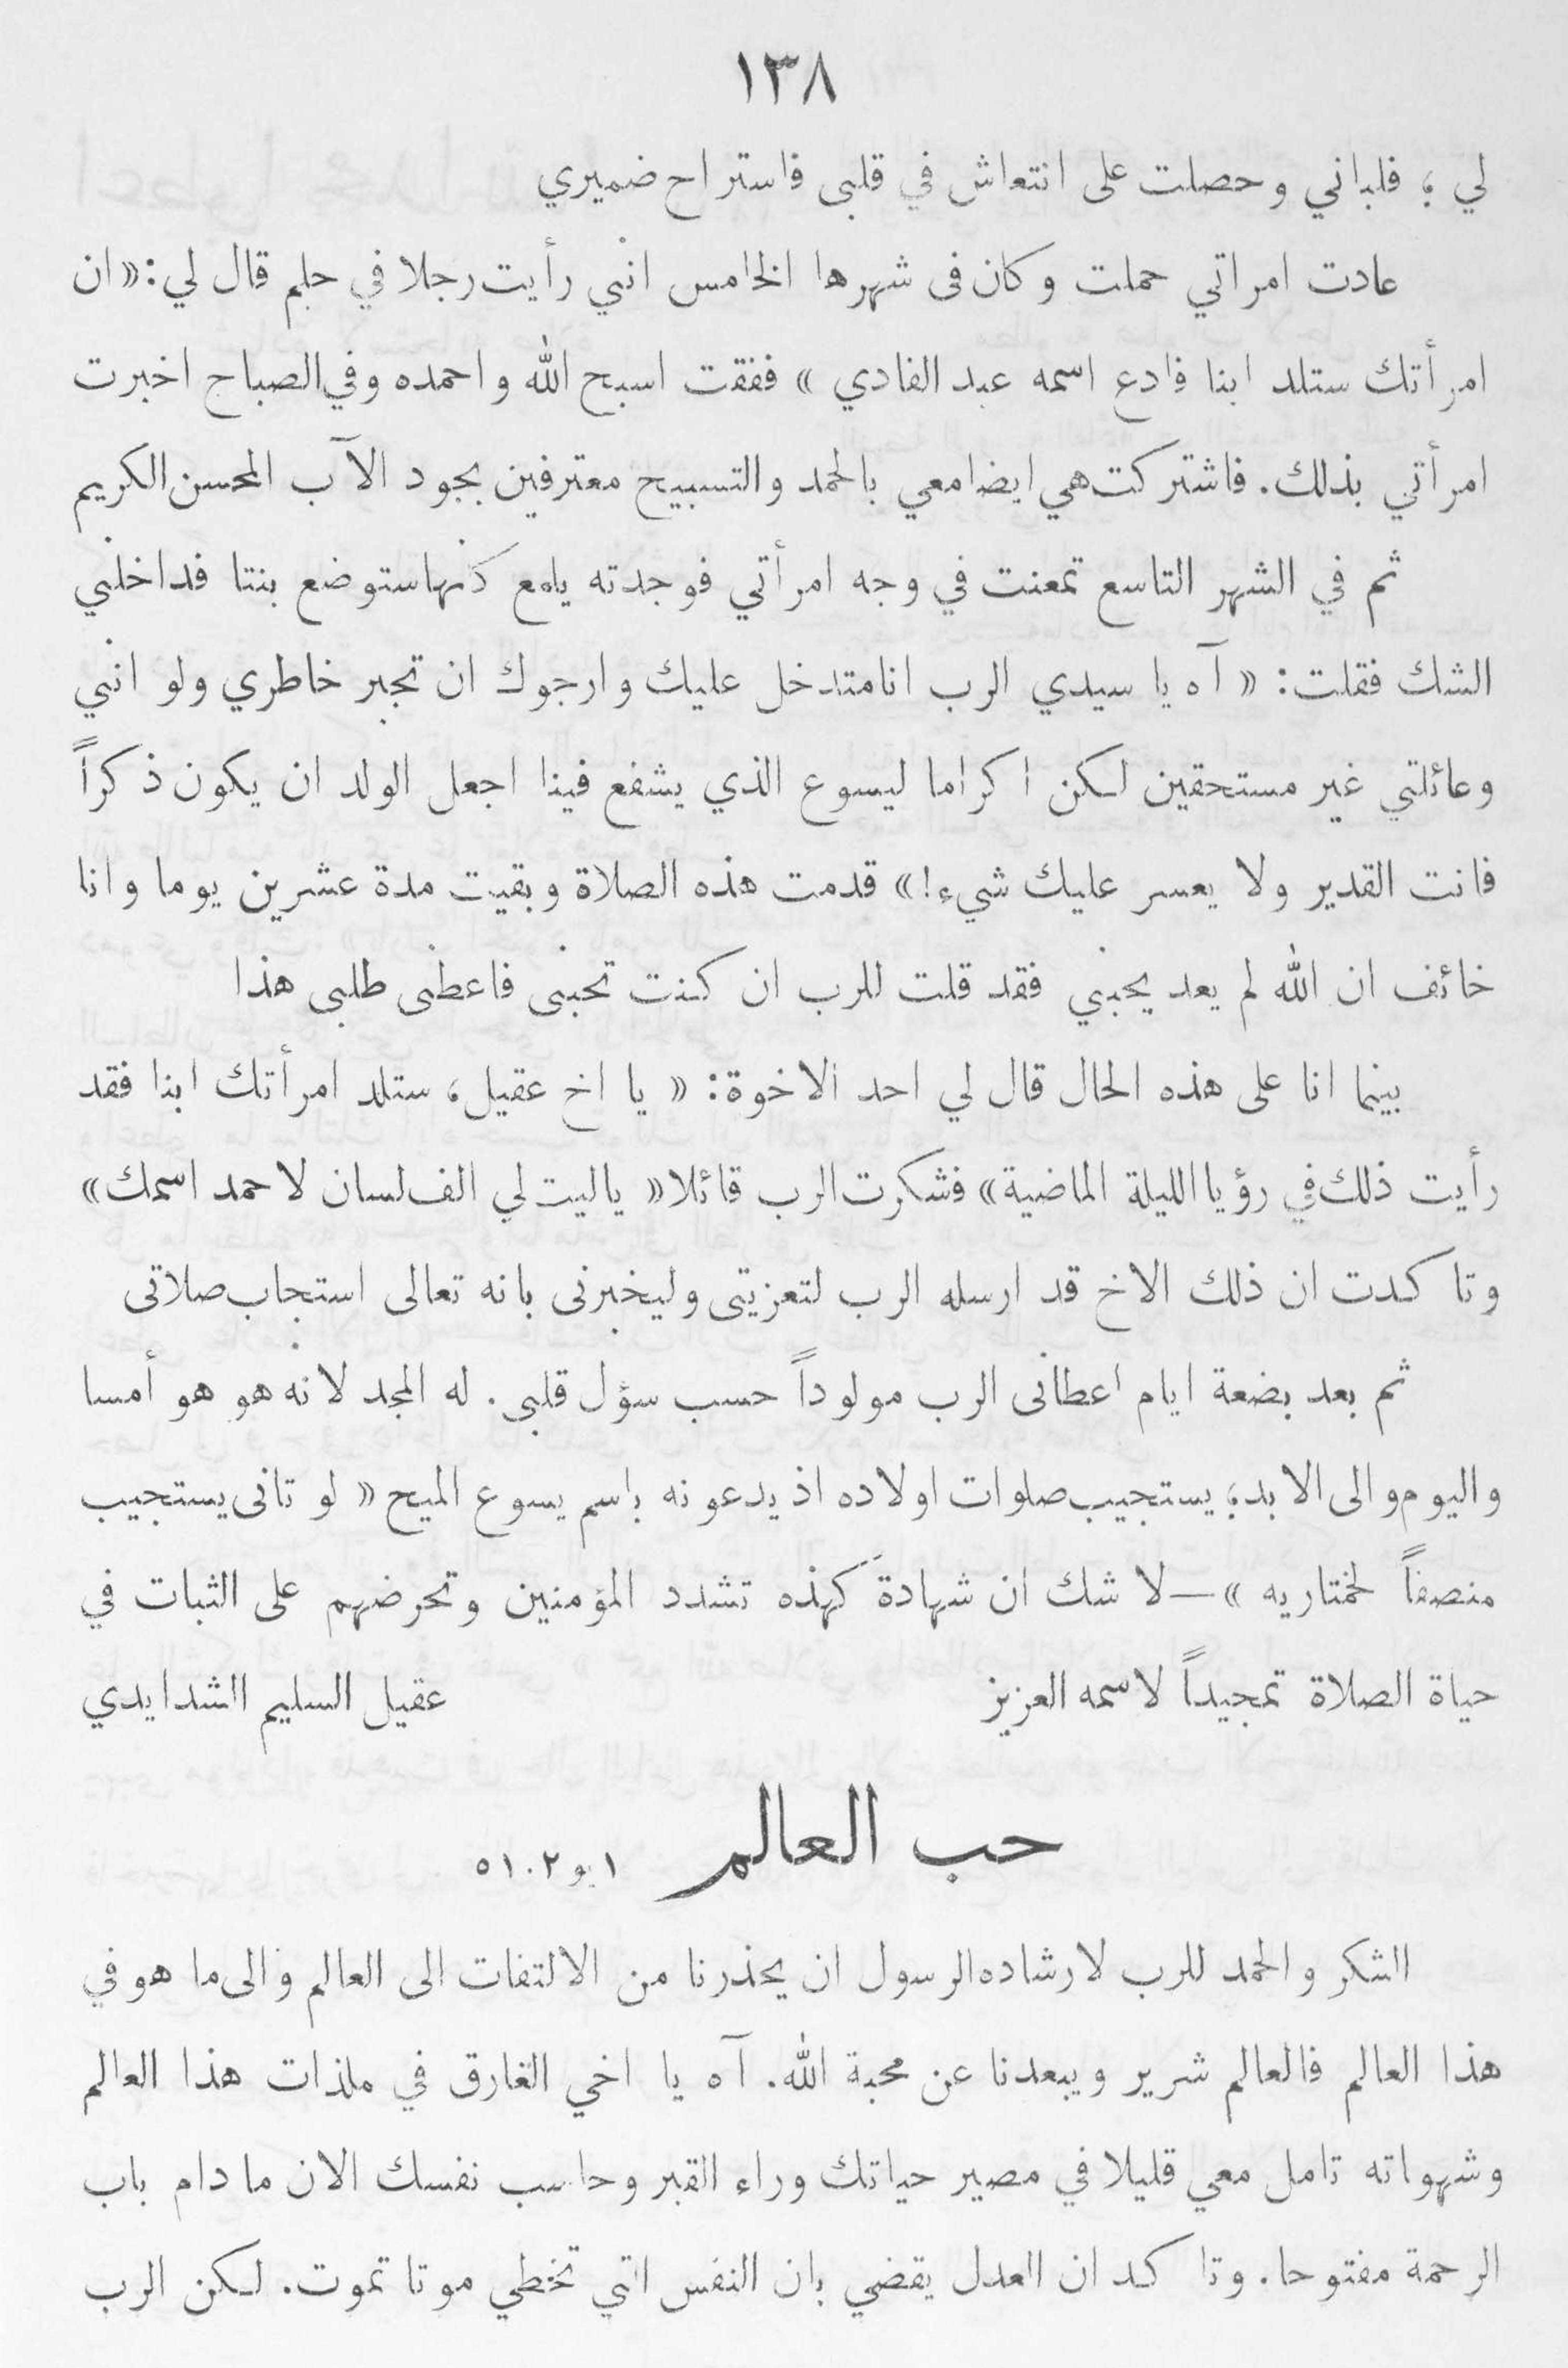 ١٣٨
لي ؛ فلباني وحصلت على انتعاش في قلبى فاستراح ضميري
عادت امراتي حملت وكان فى شهرها الخامس انني رأيت رجلا في حلم قال لي: «ان
امرأتك ستلد ابنا فادع اسمه عبد الفادي» ففقت اسبح الله واحمده وفي الصباح اخبرت
امرأتي بذلك. فاشتركت هي ايضا معي بالحمد والتسبيح معترفين بجود الآب المحسن الكريم
ثم في الشهر التاسع تمعنت في وجه امرأتي فوجدته يلمع كأنها ستوضع بنتا فداخلني
الشك فقلت: «آه يا سيدي الرب انا متدخل عليك وارجوك ان تجبر خاطري ولو انني
وعائلتي غير مستحقين لكن اكراما ليسوع الذي يشفع فينا اجعل الولد ان يكون ذكراً
فانت القدير ولا يعسر عليك شيء!» قدمت هذه الصلاة وبقيت مدة عشرين يوما وانا
خائف ان الله لم يعد يحبني فقد قلت للرب ان كنت تحبنى فاعطنى طلبى هذا
بينما انا على هذه الحال قال لي احد الاخوة: «يا اخ عقيل، ستلد امرأتك ابنا فقد
رأيت ذلك في رؤيا الليلة الماضية» فشكرت الرب قائلا «ياليت لي الف لسان لاحمد اسمك»
وتاكدت ان ذلك الاخ قد ارسله الرب لتعزيتى وليخبرنى بانه تعالى استجاب صلاتى
ثم بعد بضعة ايام اعطانى الرب مولوداً حسب سؤل قلبى. له المجد لانه هو هو أمسا
واليوم والى الابد؛ يستجيب صلوات اولاده اذ يدعونه باسم يسوع الميح «لو تانى يستجيب
منصفاً لمختاريه» — لا شك ان شهادة كهذه تشدد المؤمنين وتحرضهم على الثبات في
حياة الصلاة تمجيداً لاسمه العزيز عقيل السليم الشدايدي
حب العالم ١ يو ٢ . ٥١
الشكر والحمد للرب لارشاده الرسول ان يحذرنا من الالتفات الى العالم والى ما هو في
هذا العالم فالعالم شرير ويبعدنا عن محبة الله. آه يا اخي الغارق في ملذات هذا العالم
وشهواته تامل معي قليلا في مصير حياتك وراء القبر وحاسب نفسك الان ما دام باب
الرحمة مفتوحا. وتاكد ان العدل يقضي بان النفس التي تخطي موتا تموت. لكن الرب